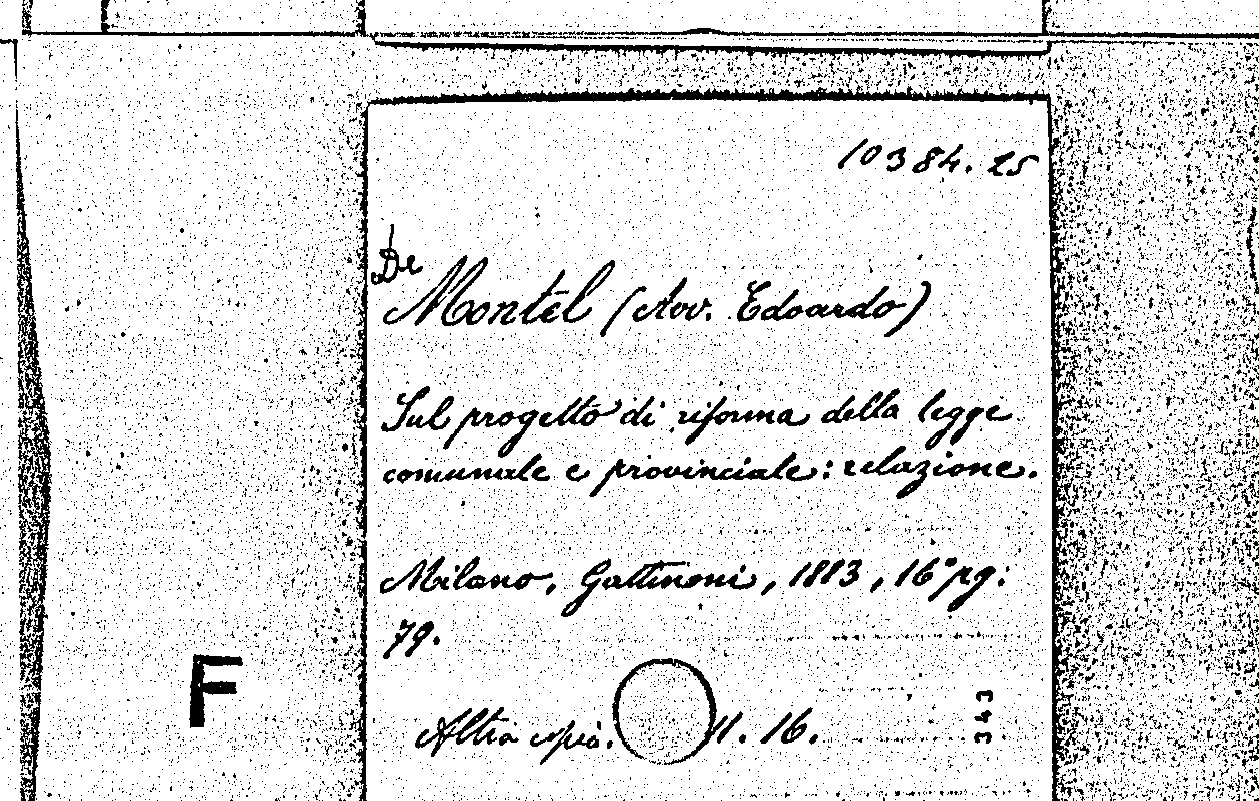 10384. 25
De
Montel (Avv. Edoardo)
Sul progetto di riforma della legge
comunale e provinciale: relazione.
Milano, Gattinoni, 1883, 16° pg:
79.
F
Altra copia. 11. 16.
343